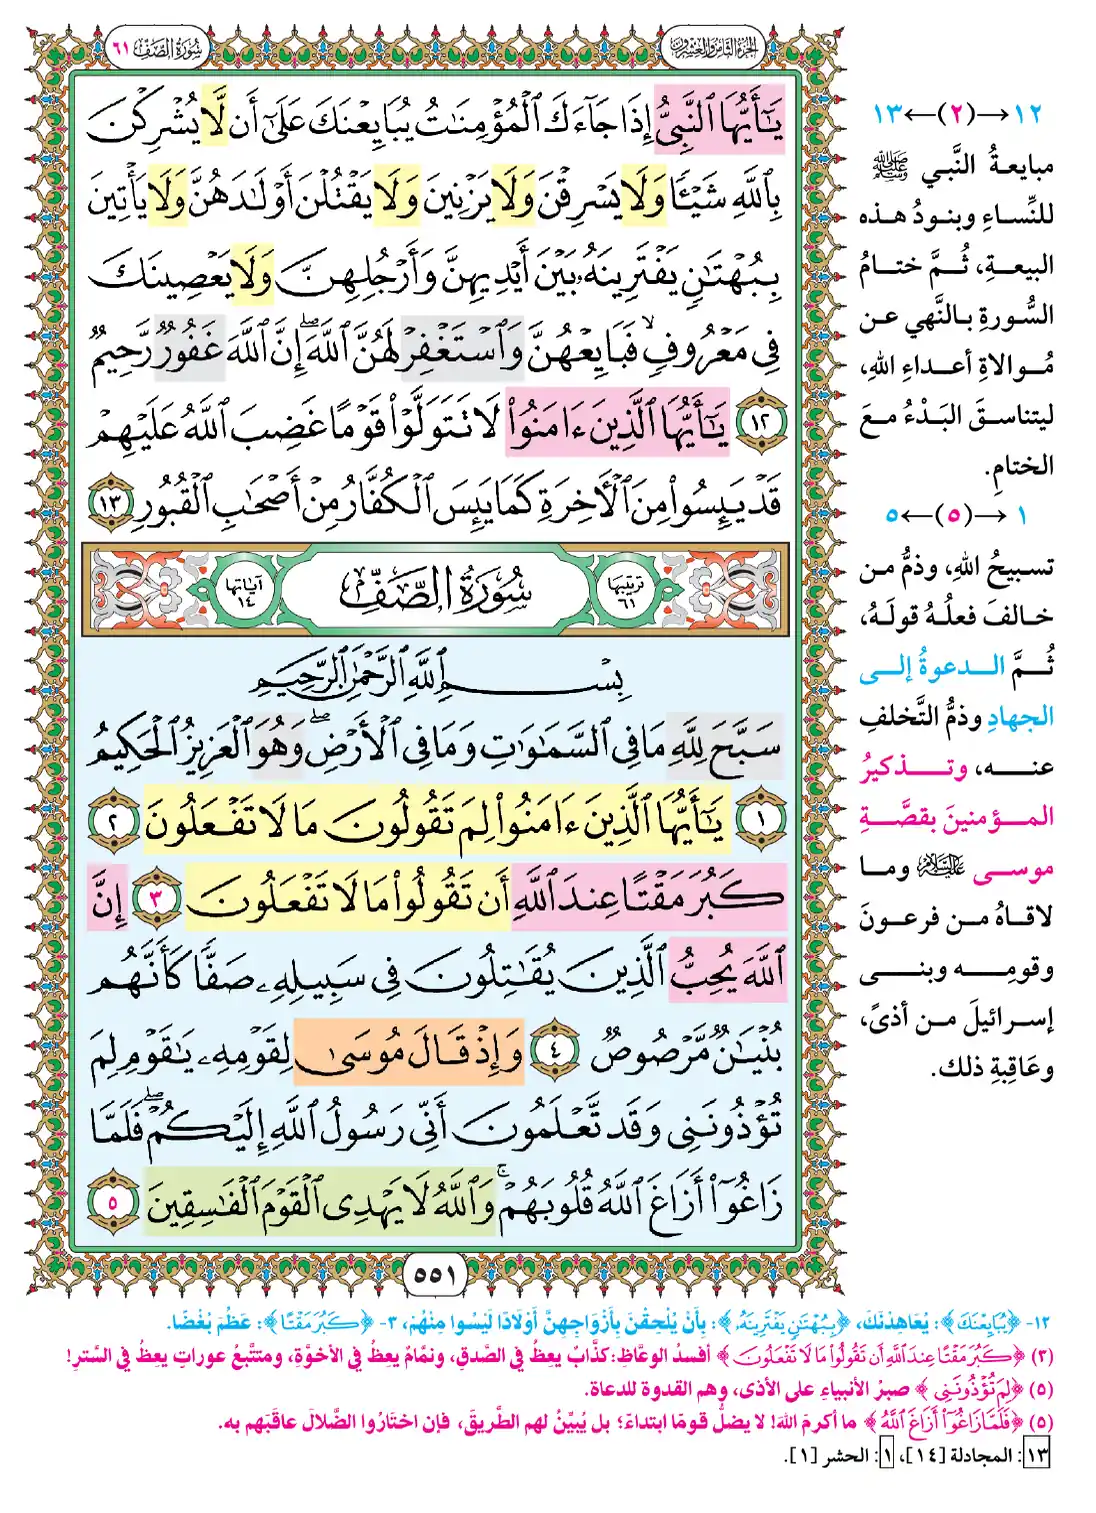 الجزء الثامن والعشرون
سورة الصف ٦١
يَٰٓأَيُّهَا ٱلنَّبِيُّ إِذَا جَآءَكَ ٱلْمُؤْمِنَٰتُ يُبَايِعْنَكَ عَلَىٰٓ أَن لَّا يُشْرِكْنَ
بِٱللَّهِ شَيْـًٔا وَلَا يَسْرِقْنَ وَلَا يَزْنِينَ وَلَا يَقْتُلْنَ أَوْلَٰدَهُنَّ وَلَا يَأْتِينَ
بِبُهْتَٰنٍ يَفْتَرِينَهُۥ بَيْنَ أَيْدِيهِنَّ وَأَرْجُلِهِنَّ وَلَا يَعْصِينَكَ
فِى مَعْرُوفٍ ۙ فَبَايِعْهُنَّ وَٱسْتَغْفِرْ لَهُنَّ ٱللَّهَ ۖ إِنَّ ٱللَّهَ غَفُورٌ رَّحِيمٌ
١٢ يَٰٓأَيُّهَا ٱلَّذِينَ ءَامَنُوا۟ لَا تَتَوَلَّوْا۟ قَوْمًا غَضِبَ ٱللَّهُ عَلَيْهِمْ
قَدْ يَئِسُوا۟ مِنَ ٱلْءَاخِرَةِ كَمَا يَئِسَ ٱلْكُفَّارُ مِنْ أَصْحَٰبِ ٱلْقُبُورِ ١٣
ترتيبها ٦١ سُورَةُ الصَّفِّ آياتها ١٤
بِسْمِ ٱللَّهِ ٱلرَّحْمَٰنِ ٱلرَّحِيمِ
سَبَّحَ لِلَّهِ مَا فِى ٱلسَّمَٰوَٰتِ وَمَا فِى ٱلْأَرْضِ ۖ وَهُوَ ٱلْعَزِيزُ ٱلْحَكِيمُ
١ يَٰٓأَيُّهَا ٱلَّذِينَ ءَامَنُوا۟ لِمَ تَقُولُونَ مَا لَا تَفْعَلُونَ ٢
كَبُرَ مَقْتًا عِندَ ٱللَّهِ أَن تَقُولُوا۟ مَا لَا تَفْعَلُونَ ٣ إِنَّ
ٱللَّهَ يُحِبُّ ٱلَّذِينَ يُقَٰتِلُونَ فِى سَبِيلِهِۦ صَفًّا كَأَنَّهُم
بُنْيَٰنٌ مَّرْصُوصٌ ٤ وَإِذْ قَالَ مُوسَىٰ لِقَوْمِهِۦ يَٰقَوْمِ لِمَ
تُؤْذُونَنِى وَقَد تَّعْلَمُونَ أَنِّى رَسُولُ ٱللَّهِ إِلَيْكُمْ ۖ فَلَمَّا
زَاغُوٓا۟ أَزَاغَ ٱللَّهُ قُلُوبَهُمْ ۚ وَٱللَّهُ لَا يَهْدِى ٱلْقَوْمَ ٱلْفَٰسِقِينَ ٥
٥٥١
١٢→(٢)←١٣
مبايعةُ النَّبي ﷺ
للنِّساءِ وبنودُ هذه
البيعةِ، ثُمَّ ختامُ
السُّورةِ بالنَّهي عن
مُوالاةِ أعداءِ اللهِ،
ليتناسقَ البَدْءُ معَ
الختامِ.
١→(٥)←٥
تسبيحُ اللهِ، وذمُّ من
خالفَ فعلُهُ قولَهُ،
ثُمَّ الدعوةُ إلى
الجهادِ وذمُّ التَّخلفِ
عنه، وتذكيرُ
المؤمنينَ بقصَّةِ
موسى عليه السلام وما
لاقاهُ من فرعونَ
وقومِه وبني
إسرائيلَ من أذىً،
وعَاقِبةِ ذلك.
١٢- ﴿يُبَايِعْنَكَ﴾: يُعَاهِدْنَكَ، ﴿بِبُهْتَٰنٍ يَفْتَرِينَهُۥ﴾: بِأَنْ يُلْحِقْنَ بِأَزْوَاجِهِنَّ أَوْلَادًا لَيْسُوا مِنْهُمْ، ٣- ﴿كَبُرَ مَقْتًا﴾: عَظُمَ بُغْضًا.
(٣) ﴿كَبُرَ مَقْتًا عِندَ ٱللَّهِ أَن تَقُولُوا۟ مَا لَا تَفْعَلُونَ﴾ أفسدُ الوعَّاظِ: كذَّابٌ يعظُ في الصِّدقِ، ونمَّامٌ يعظُ في الأخوَّةِ، ومتتبِّعُ عوراتٍ يعظُ في السَّترِ!
(٥) ﴿لِمَ تُؤْذُونَنِى﴾ صبرُ الأنبياءِ على الأذى، وهم القدوة للدعاة.
(٥) ﴿فَلَمَّا زَاغُوٓا۟ أَزَاغَ ٱللَّهُ﴾ ما أكرمَ اللهَ! لا يضلُّ قومًا ابتداءً؛ بل يُبيِّنُ لهم الطَّريقَ، فإن اختَارُوا الضَّلالَ عاقبَهم به.
١٣: المجادلة [١٤]، ١: الحشر [١].